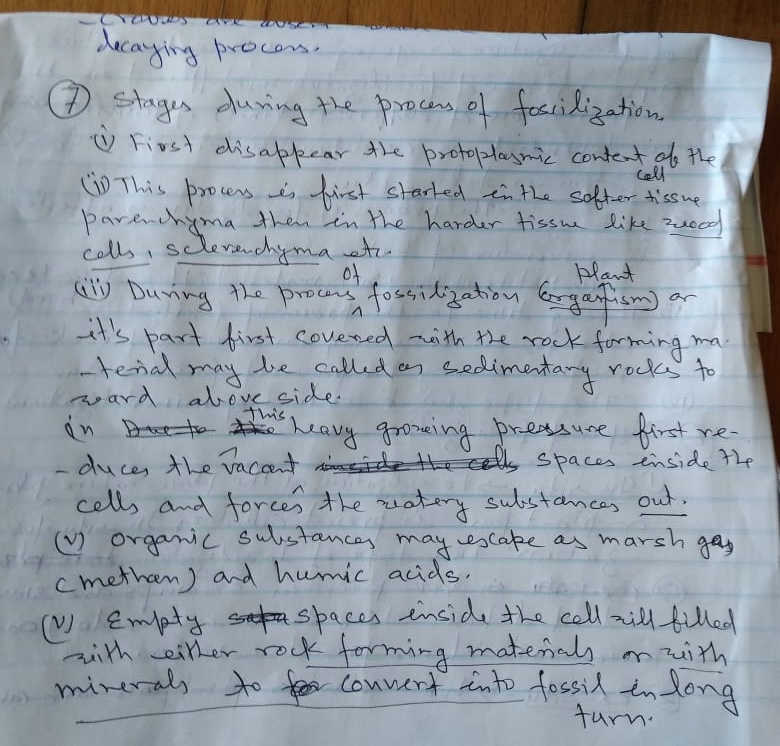 - Craves are absent
decaying process.
⑦ Stages during the process of fossilization.
(i) First disappear the protoplasmic content of the cell
(ii) This process is first started in the softer tissue
parenchyma then in the harder tissue like wood
cells, sclerenchyma etc.
(iii) During the process of fossidization plant (organism) or
it's part first covered with the rock forming ma-
-terial may be called as sedimentary rocks to
ward above side.
in Due to the this heavy growing pressure first re-
-duces the vacant inside the cells spaces inside the
cells and forces the watery substances out.
(v) organic substances may escape as marsh gas
(methan) and humic acids.
(v) Empty spaces inside the cell will filled
with either rock forming materials or with
minerals to for convert into fossil in long
turn.